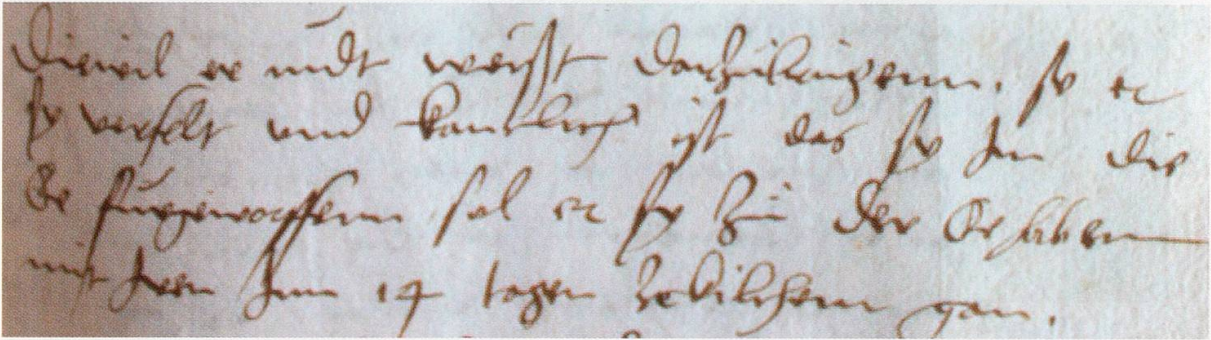 Diewil er nidt weist darzubringenn, so er
sy verfelt und kantlich ist das sy Im die
Ee furgeworffenn sol er sy zu der Ee haben
mit Iren Inn 14 tagen zekilchenn gan.